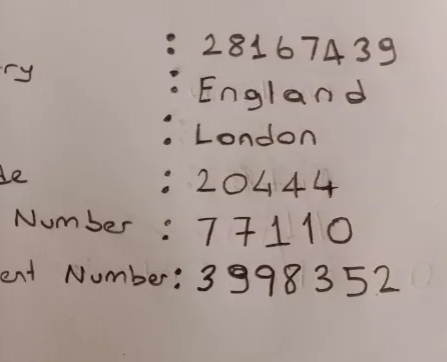 : 28167439
ry : England
: London
de : 20444
Number : 77110
ent Number: 3998352